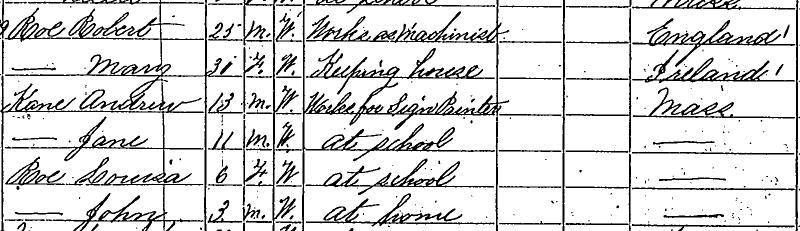 at school Mass.
Roe Robert 25 M. W. Works as Machinist England
— Mary 30 F. W. Keeping house Ireland
Kane Andrew 13 M. W. Works for Sign Painter Mass.
— Jane 11 M. W. at school —
Roe Louisa 6 F. W at school —
— John 3 M. W. at home —